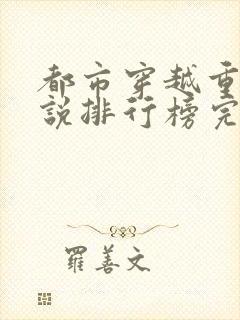 都市穿越重
說排行榜完
羅善文